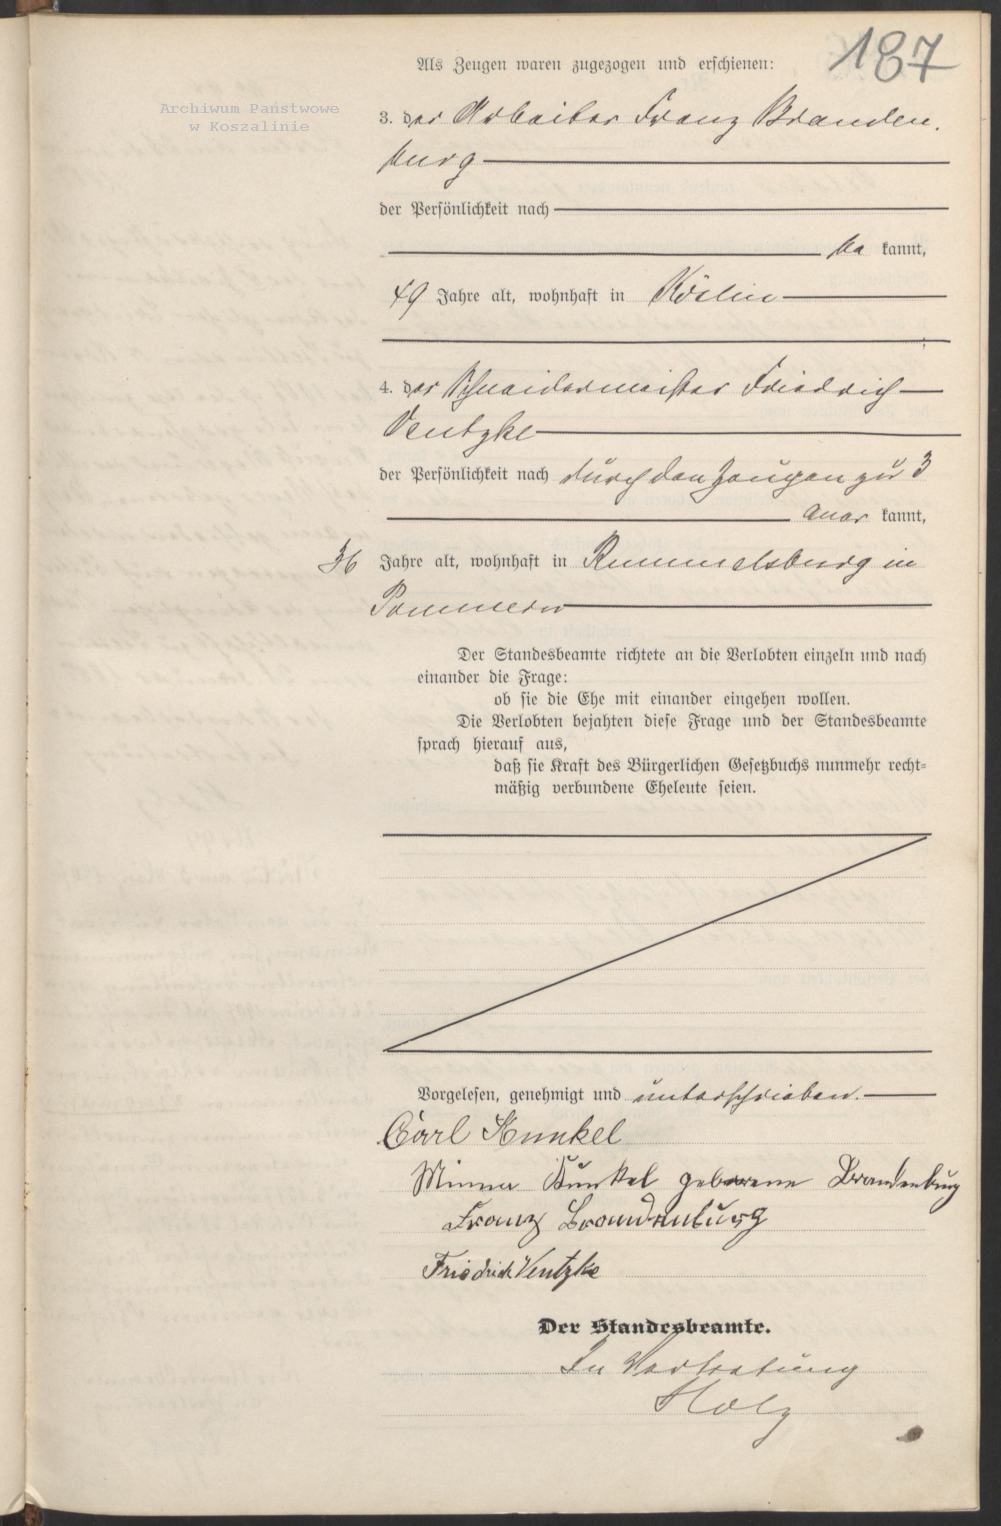 187
Als Zeugen waren zugezogen und erschienen:
Archiwum Państwowe
w Koszalinie
3. der Arbeiter Franz Branden.
burg
der Persönlichkeit nach
be kannt,
49 Jahre alt, wohnhaft in Köslin
4. der Schneidermeister Friedrich
Ventzke
der Persönlichkeit nach durch den Zeugen zu 3
aner kannt,
36 Jahre alt, wohnhaft in Rummelsburg in
Pommern
Der Standesbeamte richtete an die Verlobten einzeln und nach
einander die Frage:
ob sie die Ehe mit einander eingehen wollen.
Die Verlobten bejahten diese Frage und der Standesbeamte
sprach hierauf aus,
daß sie Kraft des Bürgerlichen Gesetzbuchs nunmehr recht-
mäßig verbundene Eheleute seien.
Vorgelesen, genehmigt und unterschrieben.
Carl Kunkel
Minna Kunkel geborene Brandenburg
Franz Brandenburg
Friedrich Ventzke
Der Standesbeamte.
In Vertretung
Holz